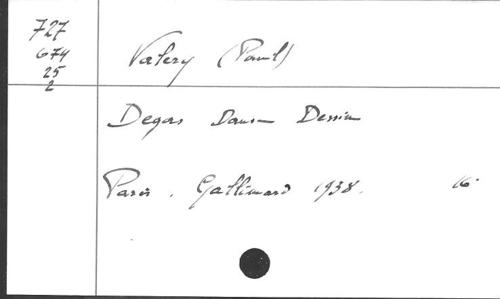 727
674
25
2
Valery (Paul)
Degas Danse Dessin
Paris. Gallimard 1938. 16°